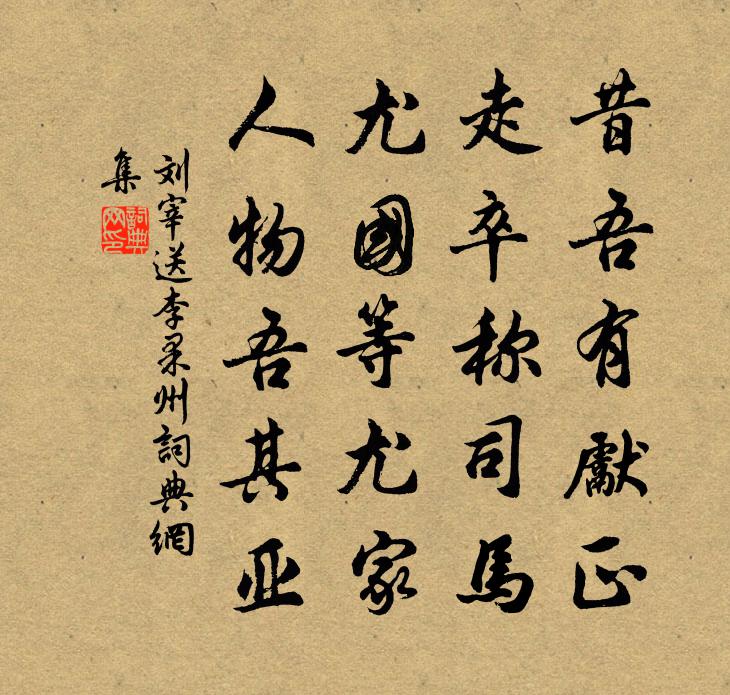 昔吾有獻正
走卒称司馬
尤國等尤家
人物吾其亚
刘宰送李果州詞典網
集
詞典
网印